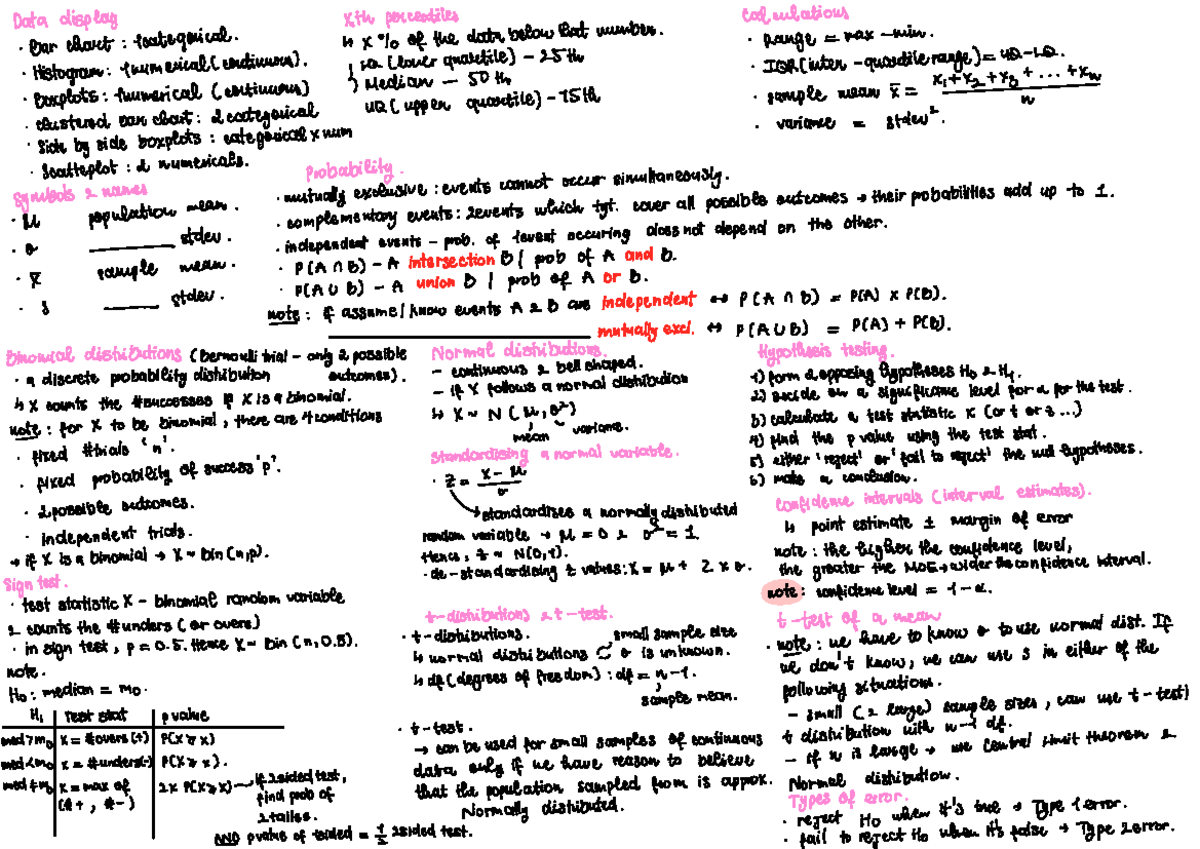 Data display
· Bar chart : 1categorical.
· Histogram: 1numerical (continuous).
· Boxplots : 1numerical (continuous)
· clustered bar chart : 2 categorical
· Side by side boxplots : categorical x num
· Scatteplot : 2 numericals.
Xth percentiles
↳ X % of the data below that number.
LQ (lower quartile) - 25th
Median - 50th
UQ (upper quartile) - 75th
Calculations
· Range = max - min.
· IQR (inter-quartile range) = UQ - LQ.
· sample mean x̄ = (x₁ + x₂ + x₃ + ... + xₙ) / n
· variance = stdev².
Symbols & names
· μ population mean.
· σ ________ stdev.
· x̄ sample mean.
· s _____ stdev.
Probability.
· mutually exclusive : events cannot occur simultaneously.
· complementary events: 2events which tgt. cover all possible outcomes → their probabilities add up to 1.
· independent events - prob. of 1event occuring does not depend on the other.
· P(A ∩ B) - A intersection B / prob of A and B.
· P(A ∪ B) - A union B / prob of A or B.
note : if assume/know events A & B are independent ↔ P(A ∩ B) = P(A) x P(B).
________ mutually excl. ↔ P(A ∪ B) = P(A) + P(B).
Binomial distributions (Bernoulli trial - only 2 possible outcomes).
· a discrete probability distribution
↳ X counts the #successes if X is a binomial.
note : for X to be binomial, there are 4 conditions
· fixed #trials 'n'.
· fixed probability of success 'p'.
· 2 possible outcomes.
· independent trials.
→ if X is a binomial → X ~ Bin (n,p).
Sign test.
· test statistic X - binomial random variable
& counts the #unders (or overs)
· in sign test, p = 0.5. Hence X ~ Bin (n, 0.5).
note.
H₀ : median = m₀.
H₁ | Test stat | p value
med > m₀ | x = #overs (+) | P(X ≥ x)
med < m₀ | x = #unders (-) | P(X ≥ x).
med ≠ m₀ | x = max of (#+, #-) | 2 x P(X ≥ x) → if 2sided test, find prob of 2 tailes.
AND pvalue of 1sided = 1/2 2sided test.
Normal distributions.
- continuous & bell shaped.
- if X follows a normal distribution
↳ X ~ N (μ, σ²)
mean variance.
Standardising a normal variable.
· Z = (X - μ) / σ
→ standardises a normally distributed
random variable → μ = 0 & σ² = 1.
Hence, Z ~ N(0,1).
· de-standardising z values: X = μ + Z x σ.
t-distributions & t-test.
· t-distributions.
↳ normal distributions small sample size
σ is unknown.
↳ df (degrees of freedom) : df = n - 1.
sample mean.
· t-test.
→ can be used for small samples of continuous
data only if we have reason to believe
that the population sampled from is approx.
Normally distributed.
Hypothesis testing.
1) form 2 opposing hypotheses H₀ & H₁.
2) decide on a significance level for α for the test.
3) calculate a test statistic x (or t or z ...)
4) find the p value using the test stat.
5) either 'reject' or 'fail to reject' the null hypotheses.
6) make a conclusion.
Confidence intervals (interval estimates).
↳ point estimate ± margin of error
note : the higher the confidence level,
the greater the MOE → wider the confidence interval.
note : confidence level = 1 - α.
t-test of a mean
· note : we have to know σ to use normal dist. If
we don't know, we can use s in either of the
following situations.
- small (& large) sample sizes, can use t-test/
t distribution with n-1 df.
- if n is large → use central limit theorem &
Normal distribution.
Types of error.
· reject H₀ when it's true → Type 1 error.
· fail to reject H₀ when it's false → Type 2 error.